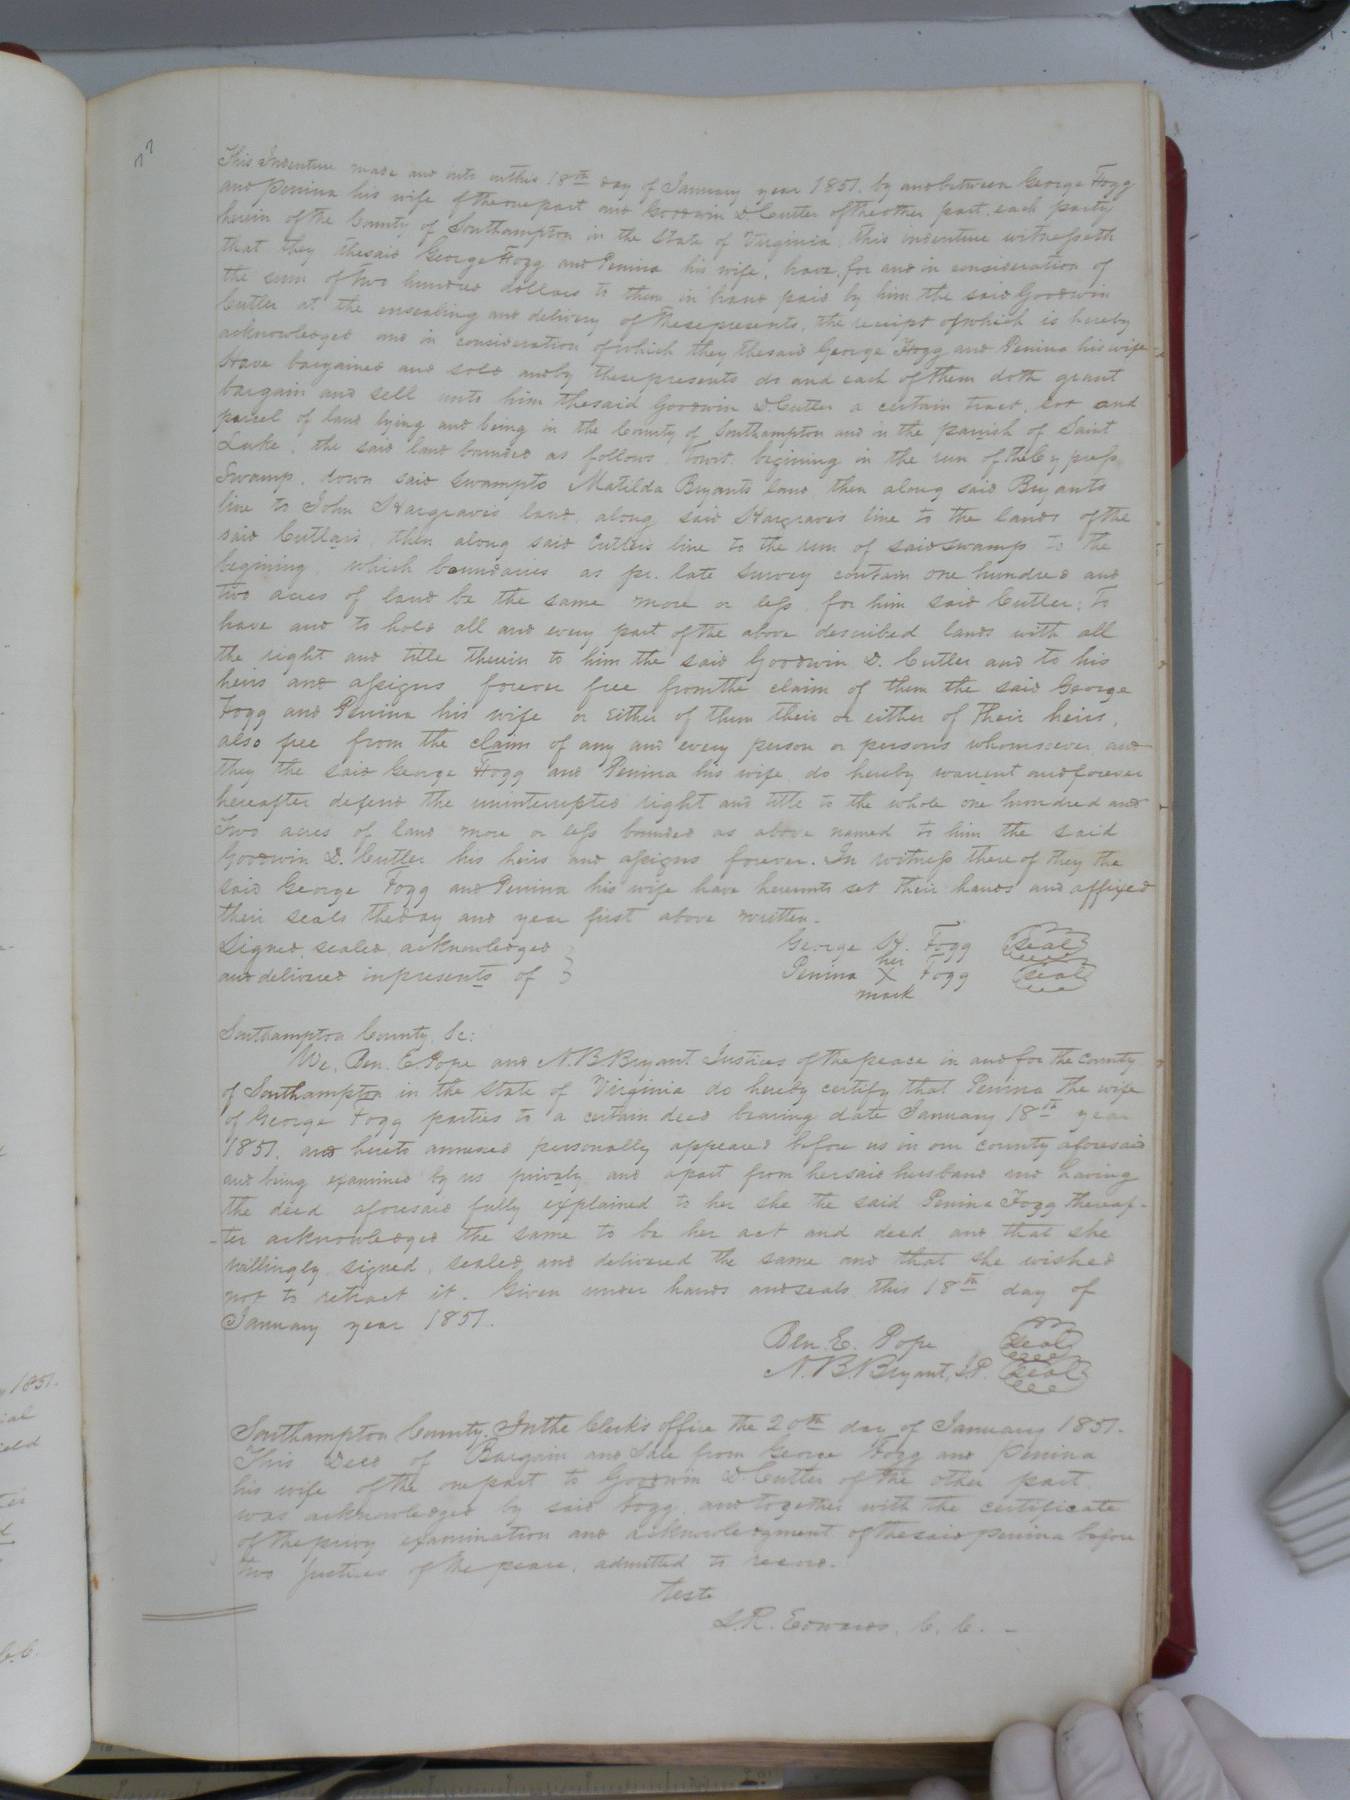 This Indenture made and into on this 18th day of January year 1851. by and between George Fogg
and Penina his wife of the one part and Goodwin D. Cutler of the other part. each party
herein of the County of Southampton in the State of Virginia, this indenture witnesseth
that they the said George Fogg and Penina his wife, have, for and in consideration of
the sum of two hundred dollars to them in hand paid by him the said Goodwin
Cutler at the ensealing and delivery of these presents, the receipt of which is hereby
acknowledged and in consideration of which they the said George Fogg and Penina his wife
have bargained and sold and by these presents do and each of them doth grant
bargain and sell unto him the said Goodwin D. Cutler a certain tract, lot and
parcel of land lying and being in the County of Southampton and in the parish of Saint
Luke, the said land bounded as follows, Towit. begining in the run of the Cypress
Swamp, down said swamp to Matilda Bryants land, then along said Bryants
line to John Hargraves land, along said Hargraves line to the lands of the
said Cutlars, then along said Cutlers line to the run of said swamp to the
begining, which boundaries as pr. late survey contain one hundred and
two acres of land be the same more or less, for him said Cutler; to
have and to hold all and every part of the above described lands with all
the right and title therein to him the said Goodwin D. Cutler and to his
heirs and assigns forever free from the claim of them the said George
Fogg and Penina his wife or either of them their or either of their heirs,
also free from the claim of any and every person or persons whomsoever, and
they the said George Fogg and Penina his wife do hereby warrent and forever
hereafter defend the uninterrupted right and title to the whole one hundred and
two acres of land more or less bounded as above named to him the said
Goodwin D. Cutler his heirs and assigns forever. In witness thereof they the
said George Fogg and Penina his wife have hereunto set their hands and affixed
their seals the day and year first above written.
Signed, sealed, acknowledged } George H. Fogg seal
and delivered in presents of } Penina her X mark Fogg seal
Southampton County Sc:
We, Ben. E. Pope and N. B. Bryant Justices of the peace in and for the County
of Southampton in the State of Virginia do hereby certify that Penina the wife
of George Fogg parties to a certain deed bearing date January 18th year
1851, and hereto annexed personally appeared before us in our county aforesaid
and being examined by us privaly and apart from her said husband and having
the deed aforesaid fully explained to her she the said Penina Fogg thereaf-
-ter acknowledged the same to be her act and deed, and that she
willingly signed, sealed and delivered the same and that she wished
not to retract it. Given under hands and seals this 18th day of
January year 1851.
Ben. E. Pope seal
N. B. Bryant, J.P. seal
Southampton County. In the Clerk's office the 20th day of January 1851.
This Deed of Bargain and Sale from George Fogg and Penina
his wife of the one part to Goodwin D. Cutler of the other part
was acknowledged by said Fogg, and together with the certificate
of the privy examination and acknowledgment of the said Penina before
two Justices of the peace, admitted to record.
Teste
L. R. Edwards, C. C.